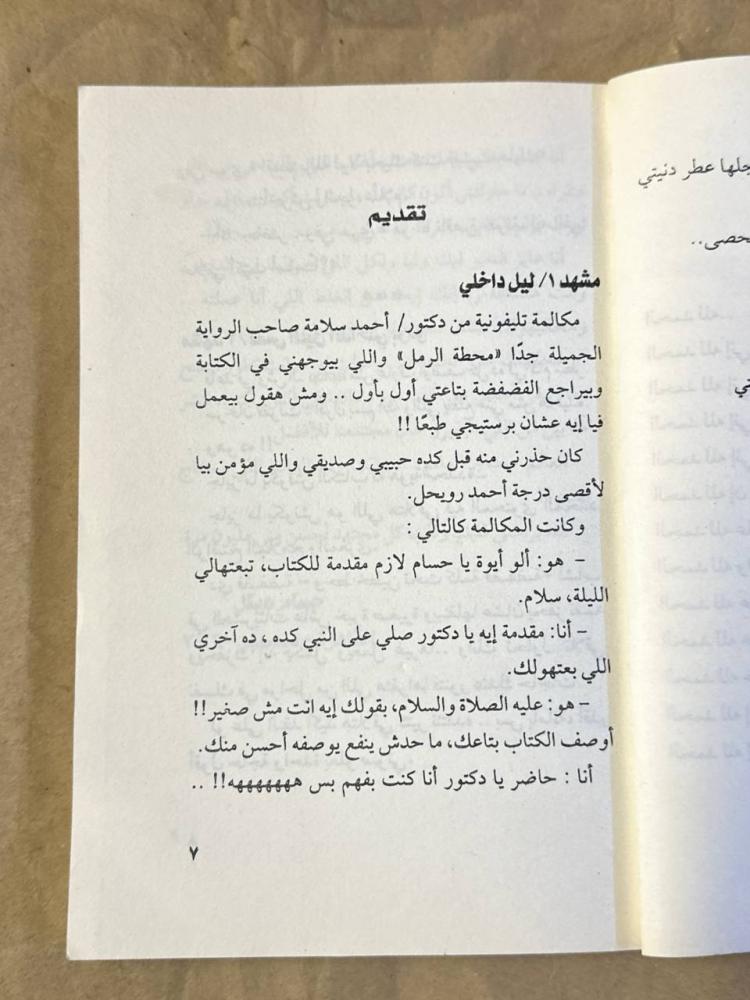 تقديم
مشهد ١/ ليل داخلي
مكالمة تليفونية من دكتور/ أحمد سلامة صاحب الرواية
الجميلة جدًا «محطة الرمل» واللي بيوجهني في الكتابة
وبيراجع الفضفضة بتاعتي أول بأول .. ومش هقول بيعمل
فيا إيه عشان برستيجي طبعًا !!
كان حذرني منه قبل كده حبيبي وصديقي واللي مؤمن بيا
لأقصى درجة أحمد رويحل.
وكانت المكالمة كالتالي :
– هو: ألو أيوة يا حسام لازم مقدمة للكتاب، تبعتهالي
الليلة، سلام.
– أنا: مقدمة إيه يا دكتور صلي على النبي كده ، ده آخري
اللي بعتهولك.
– هو: عليه الصلاة والسلام، بقولك إيه انت مش صغير!!
أوصف الكتاب بتاعك، ما حدش ينفع يوصفه أحسن منك.
أنا : حاضر يا دكتور أنا كنت بفهم بس هههههههه!! ..
٧
عطر دنيتي